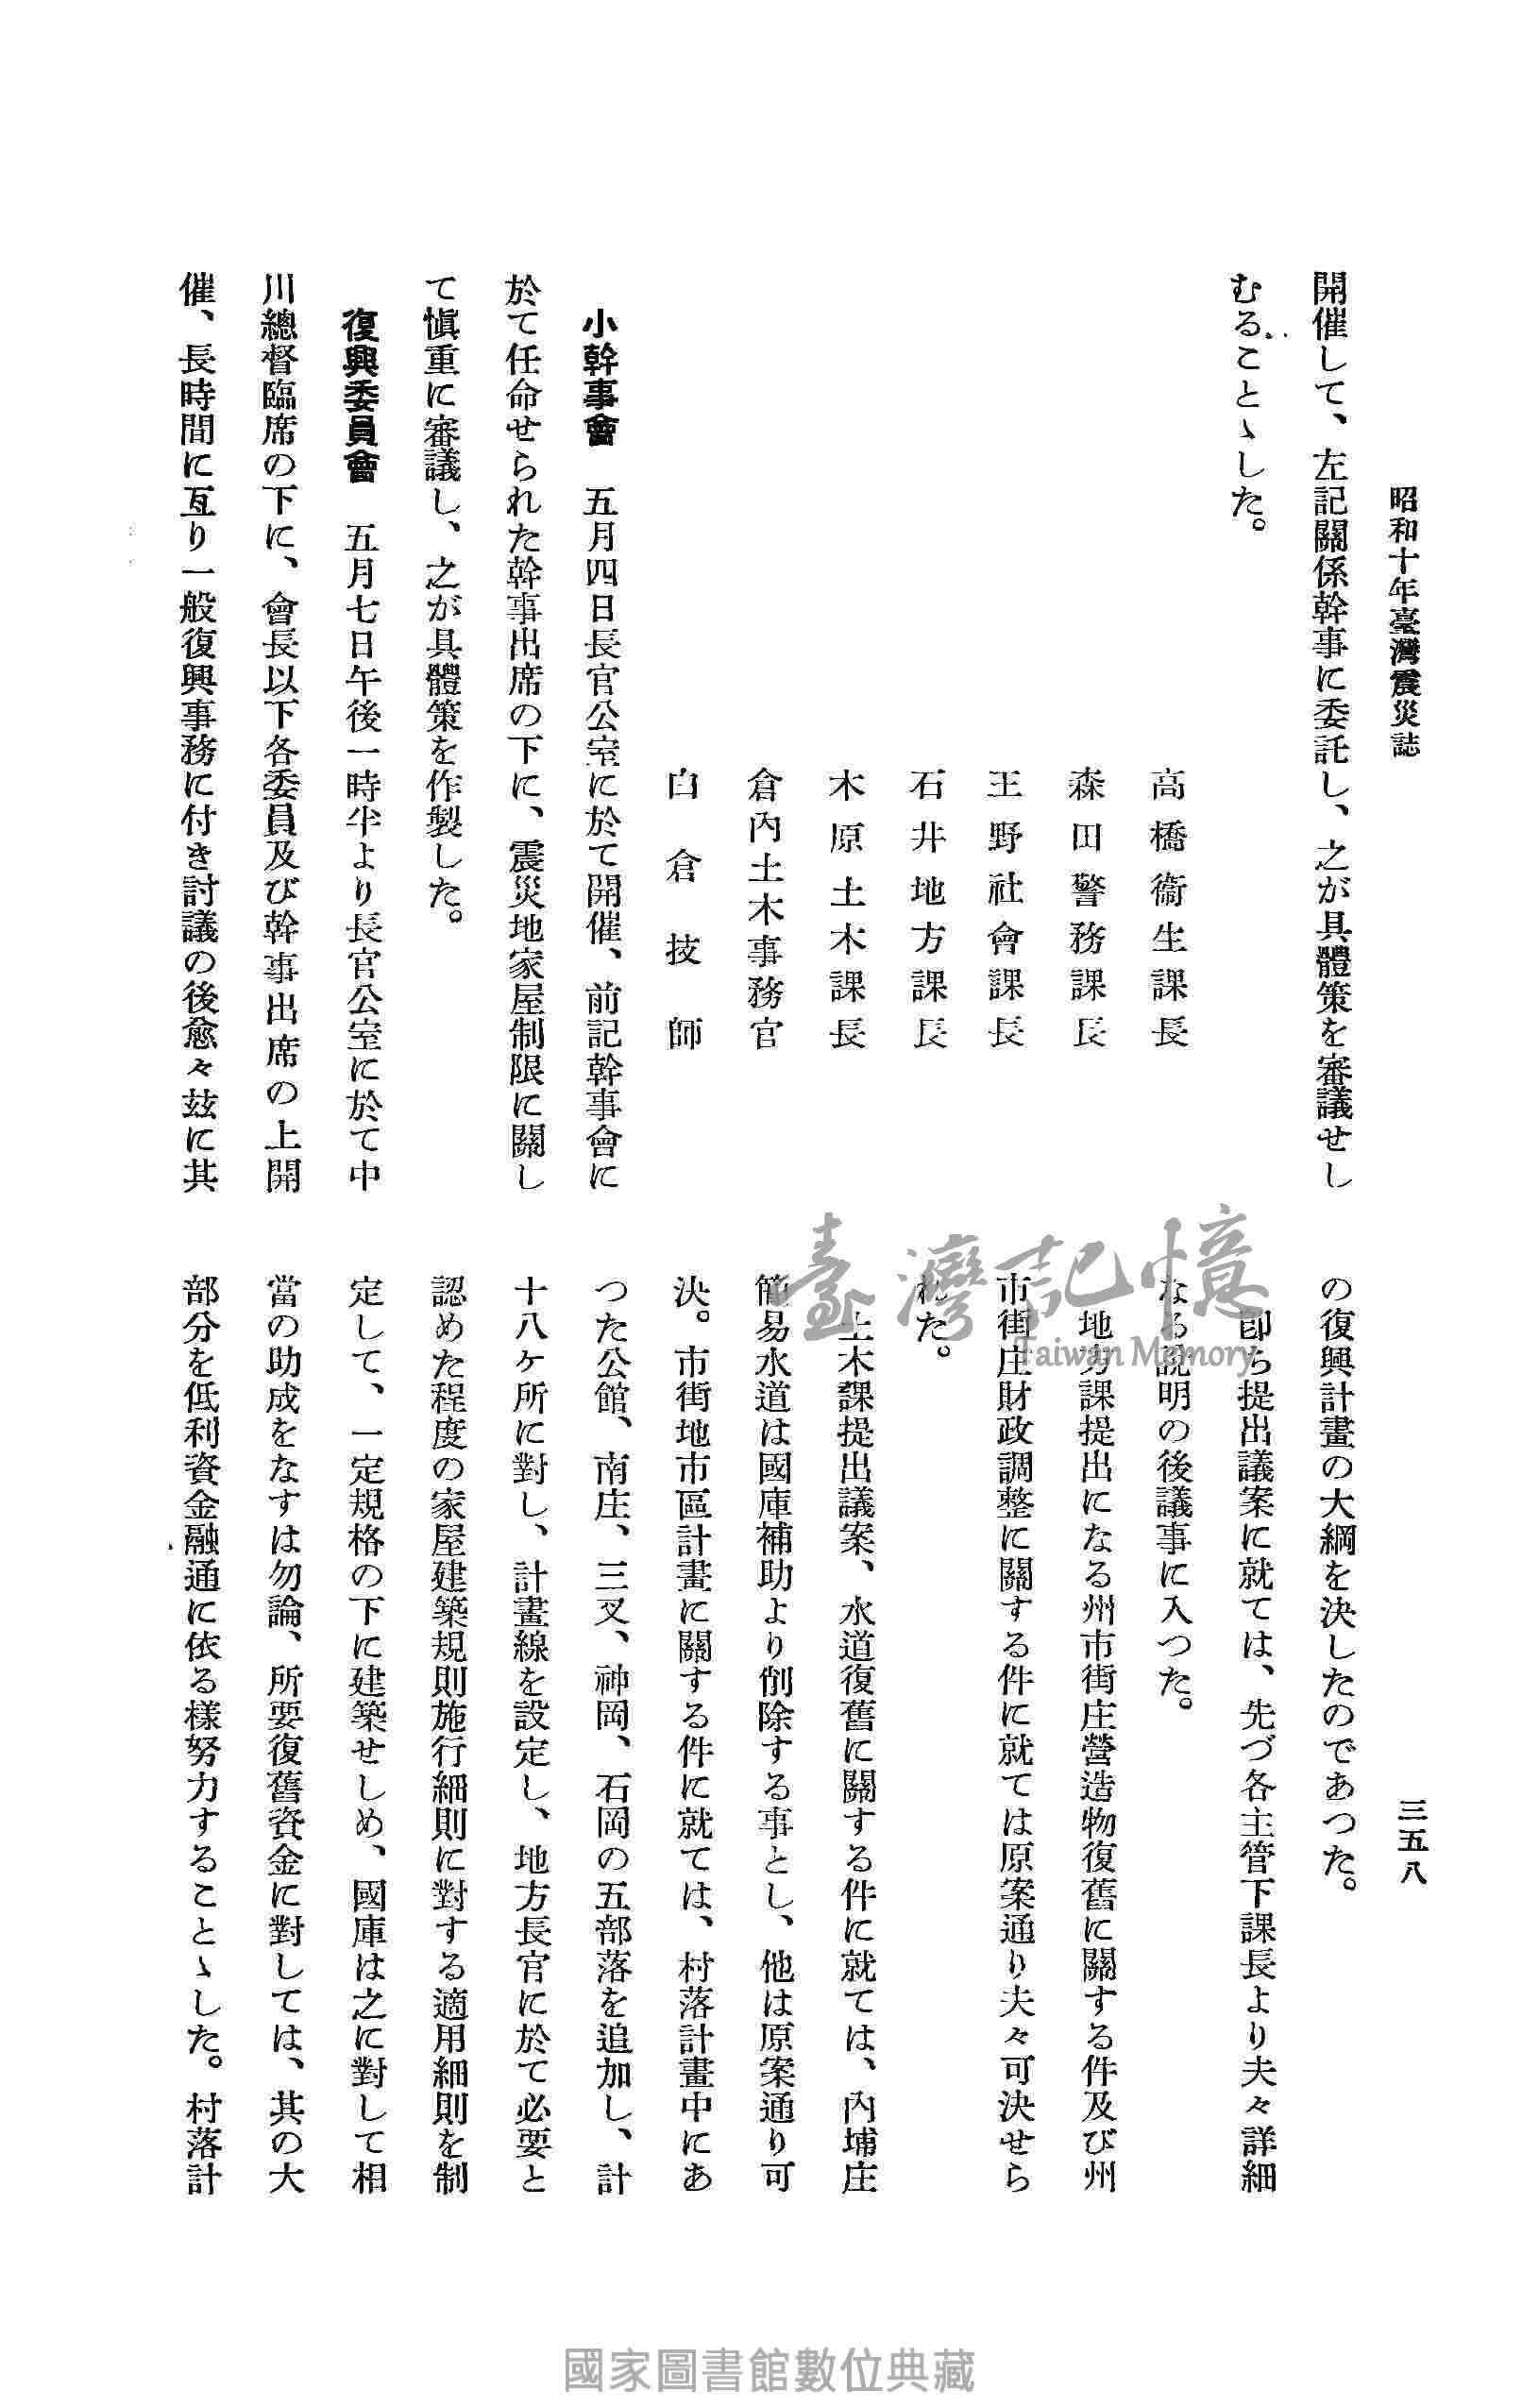 昭和十年臺灣震災誌
三五八
開催して、左記關係幹事に委託し、之が具體策を審議せし
むることゝした。
高橋衞生課長
森田警務課長
王野社會課長
石井地方課長
木原土木課長
倉內土木事務官
白倉技師
小幹事會　五月四日長官公室に於て開催、前記幹事會に
於て任命せられた幹事出席の下に、震災地家屋制限に關し
て愼重に審議し、之が具體策を作製した。
復興委員會　五月七日午後一時半より長官公室に於て中
川總督臨席の下に、會長以下各委員及び幹事出席の上開
催、長時間に亙り一般復興事務に付き討議の後愈々玆に其
の復興計畫の大綱を決したのであつた。
卽ち提出議案に就ては、先づ各主管下課長より夫々詳細
なる說明の後議事に入つた。
地方課提出になる州市街庄營造物復舊に關する件及び州
市街庄財政調整に關する件に就ては原案通り夫々可決せら
れた。
土木課提出議案、水道復舊に關する件に就ては、內埔庄
簡易水道は國庫補助より削除する事とし、他は原案通り可
決。市街地市區計畫に關する件に就ては、村落計畫中にあ
つた公館、南庄、三叉、神岡、石岡の五部落を追加し、計
十八ケ所に對し、計畫線を設定し、地方長官に於て必要と
認めた程度の家屋建築規則施行細則に對する適用細則を制
定して、一定規格の下に建築せしめ、國庫は之に對して相
當の助成をなすは勿論、所要復舊資金に對しては、其の大
部分を低利資金融通に依る樣努力することゝした。村落計
臺灣記憶
Taiwan Memory
國家圖書館數位典藏